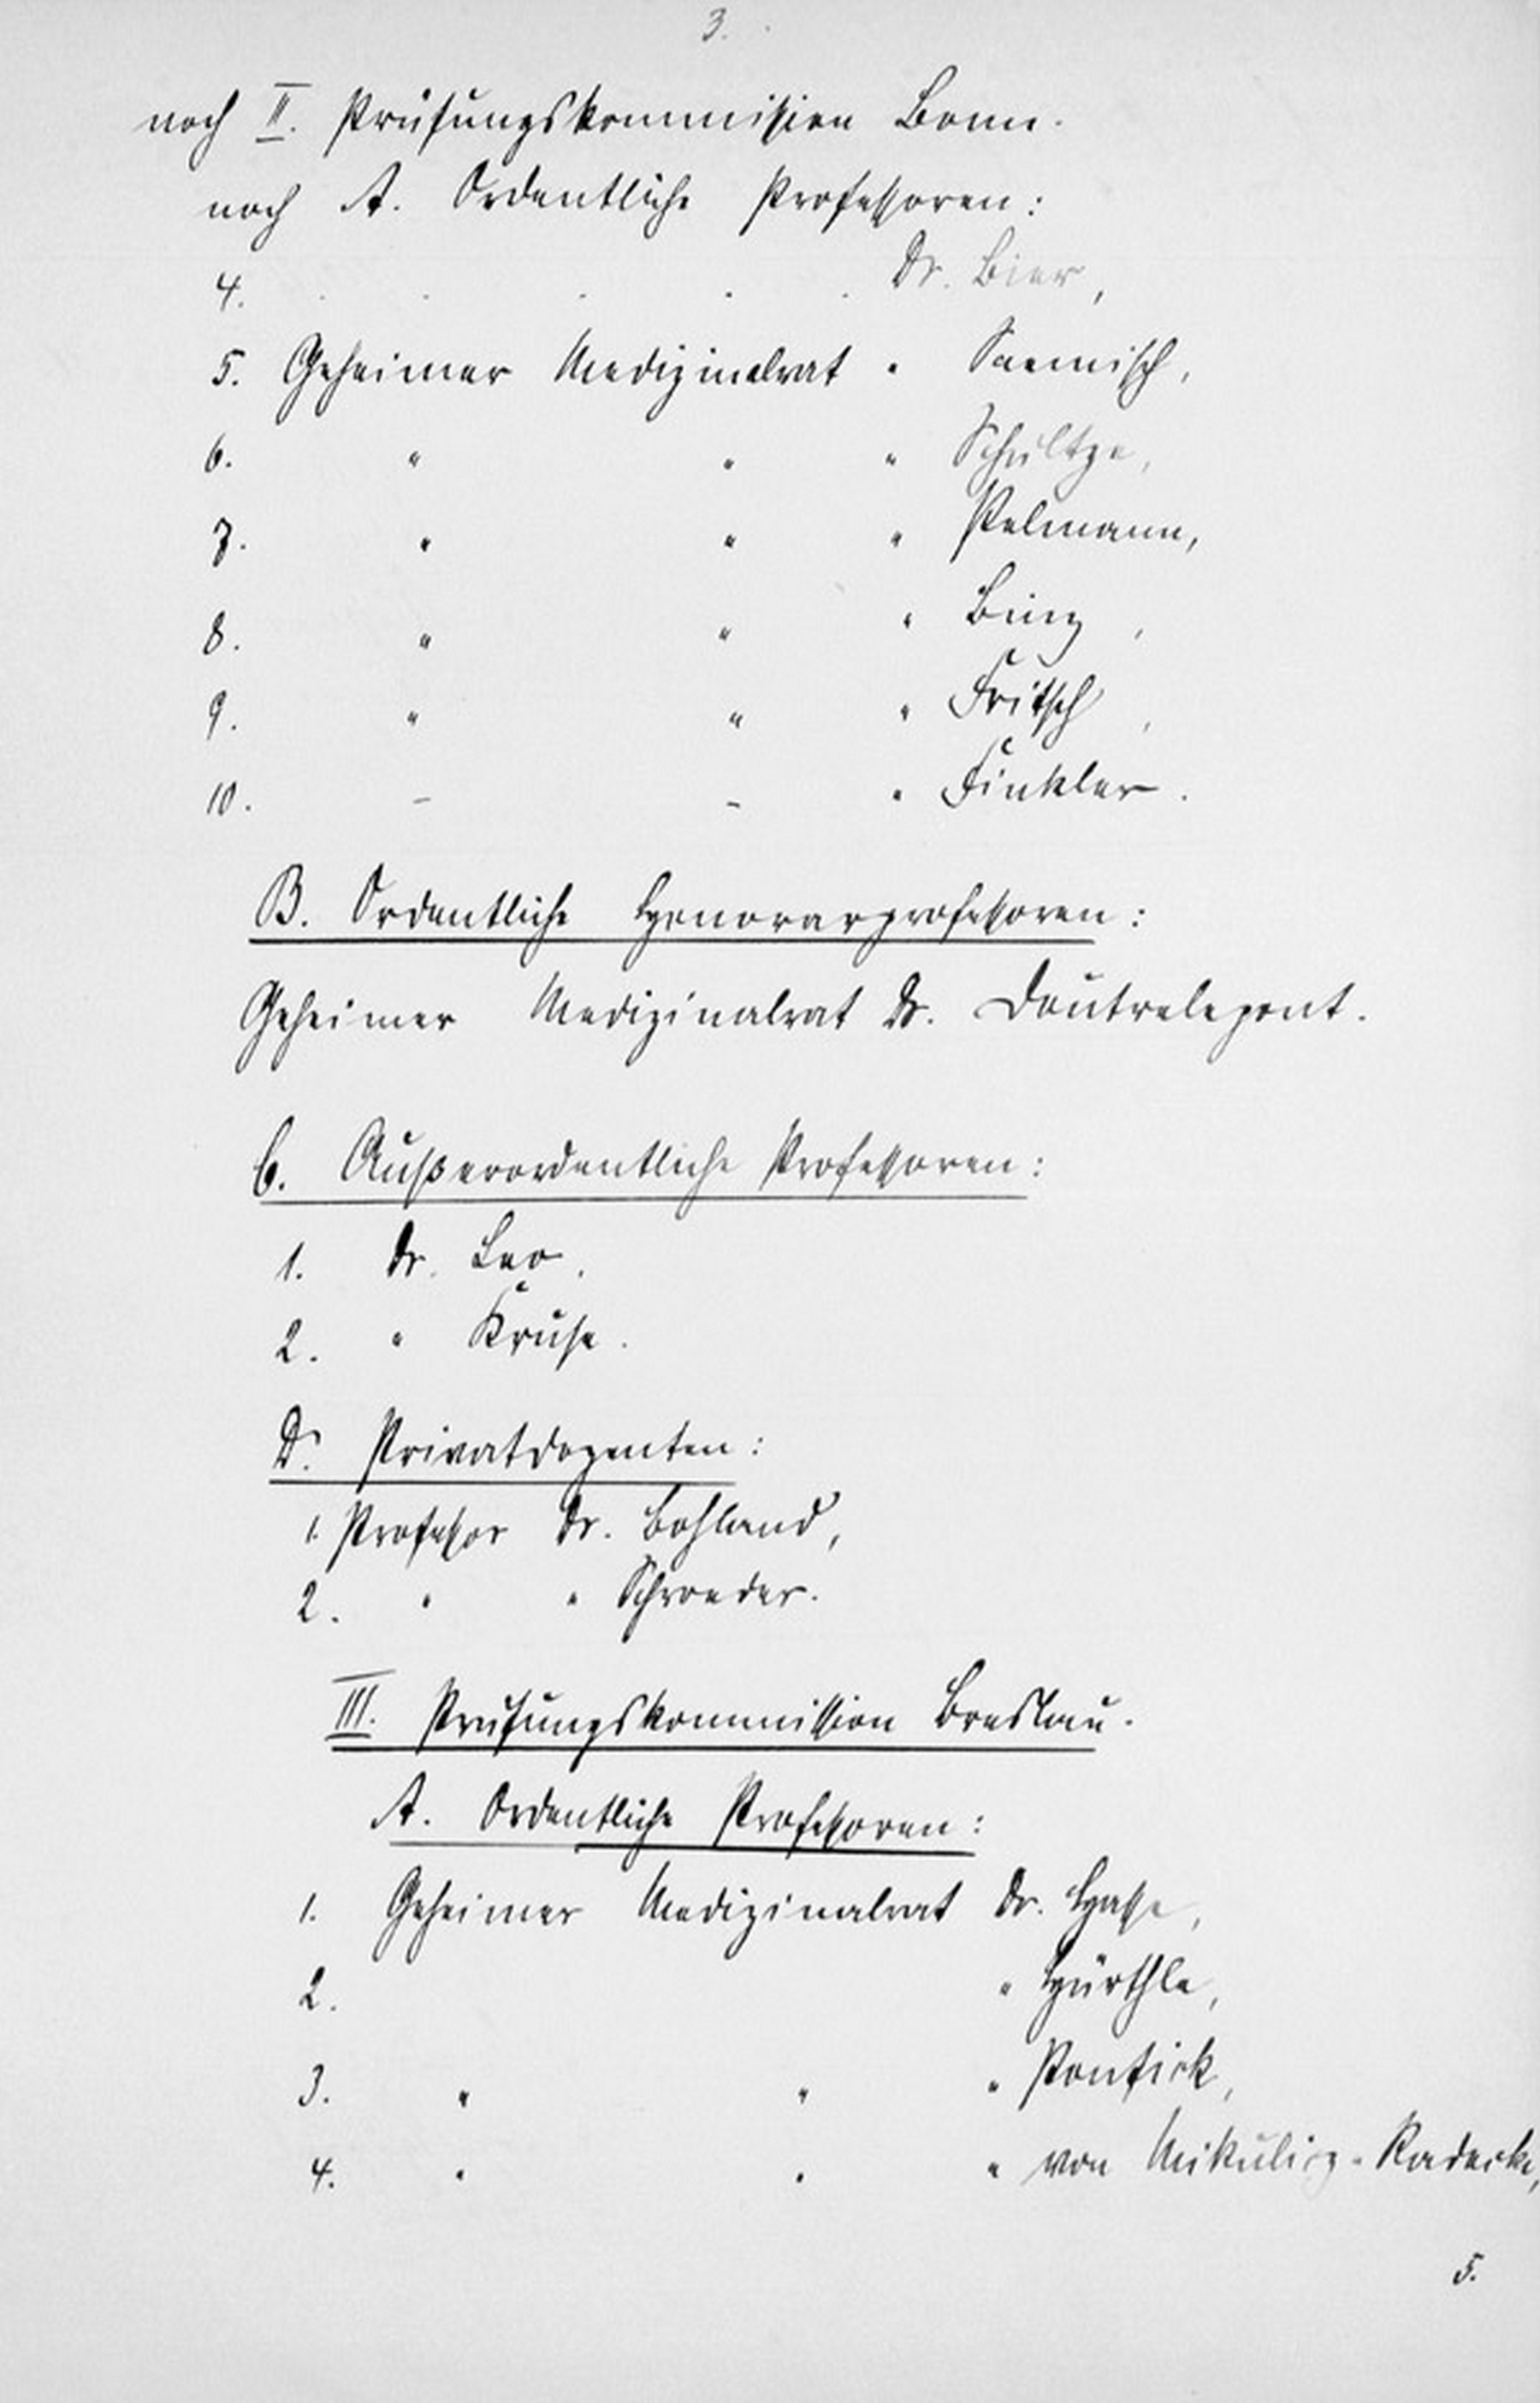 3.
noch II. Prüfungskommission Bonn.
noch A. Ordentliche Professoren:
4. . . . . . Dr. Bier,
5. Geheimer Medizinalrat " Saemisch,
6. " " " Schultze,
7. " " " Pelmann,
8. " " " Binz,
9. " " " Fritsch,
10. – – " Finkler.
B. Ordentliche Honorarprofessoren:
Geheimer Medizinalrat Dr. Doutrelepont.
C. Außerordentliche Professoren:
1. Dr. Leo.
2. " Kruse.
D. Privatdozenten:
1. Professor Dr. Bohland,
2. " " Schroeder.
III. Prüfungskommission Breslau.
A. Ordentliche Professoren:
1. Geheimer Medizinalrat Dr. Hasse,
2. " Hürthle,
3. " " " Ponfick,
4. " " " von Mikulicz-Radecki,
5.